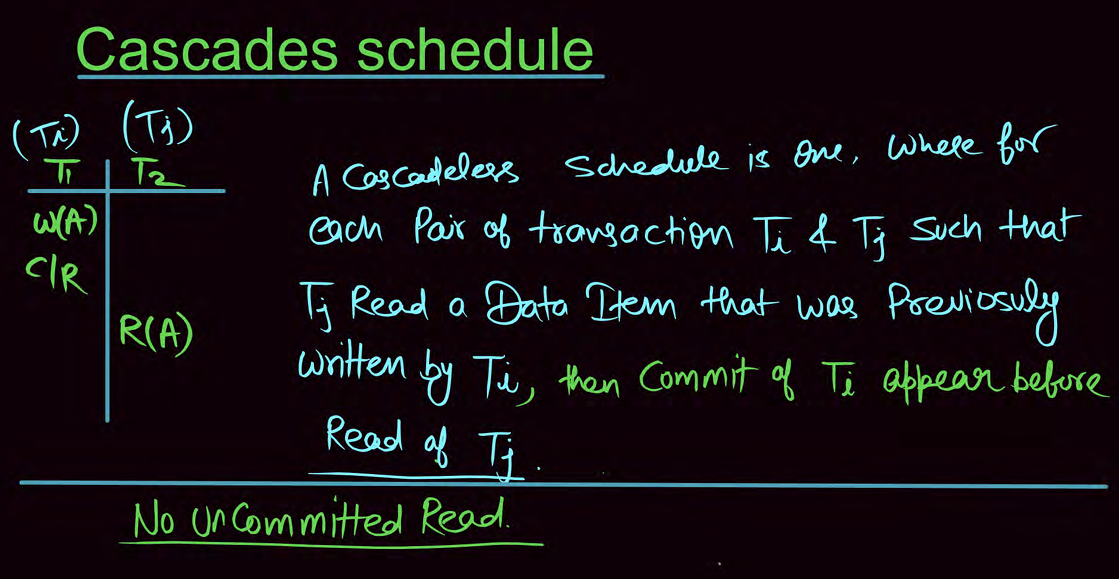 Cascades schedule
(Ti) (Tj)
T1 T2
W(A)
C/R
R(A)
A Cascadeless Schedule is One, Where for
each Pair of transaction Ti & Tj Such that
Tj Read a Data Item that was Previosuly
written by Ti, then Commit of Ti appear before
Read of Tj.
No UnCommitted Read.